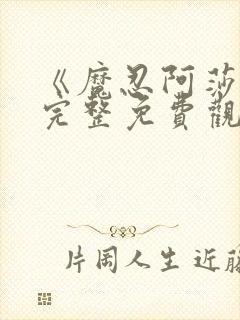 《魔忍阿莎
完整免費觀
片岡人生 近藤